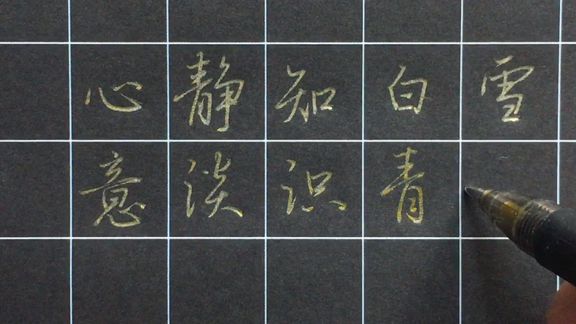 心静知白雪
意淡识青